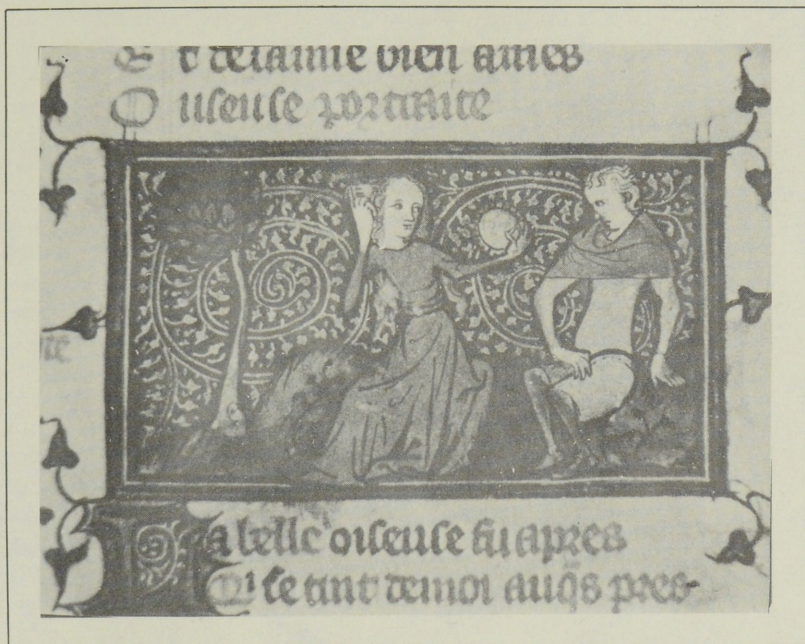 Et de lamie bien ames
Oiseuse portraite
La belle oiseuse fu apres
Qi se tint de moi auqs pres